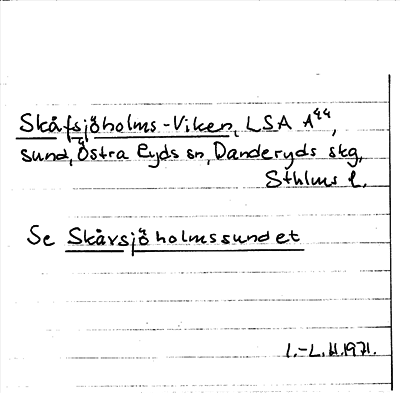 Skåfsjöholms-Viken, LSA A⁴⁴,
sund, Östra Ryds sn, Danderyds skg,
Sthlms l.
Se Skåvsjöholmssundet
l.-L.H.1971.